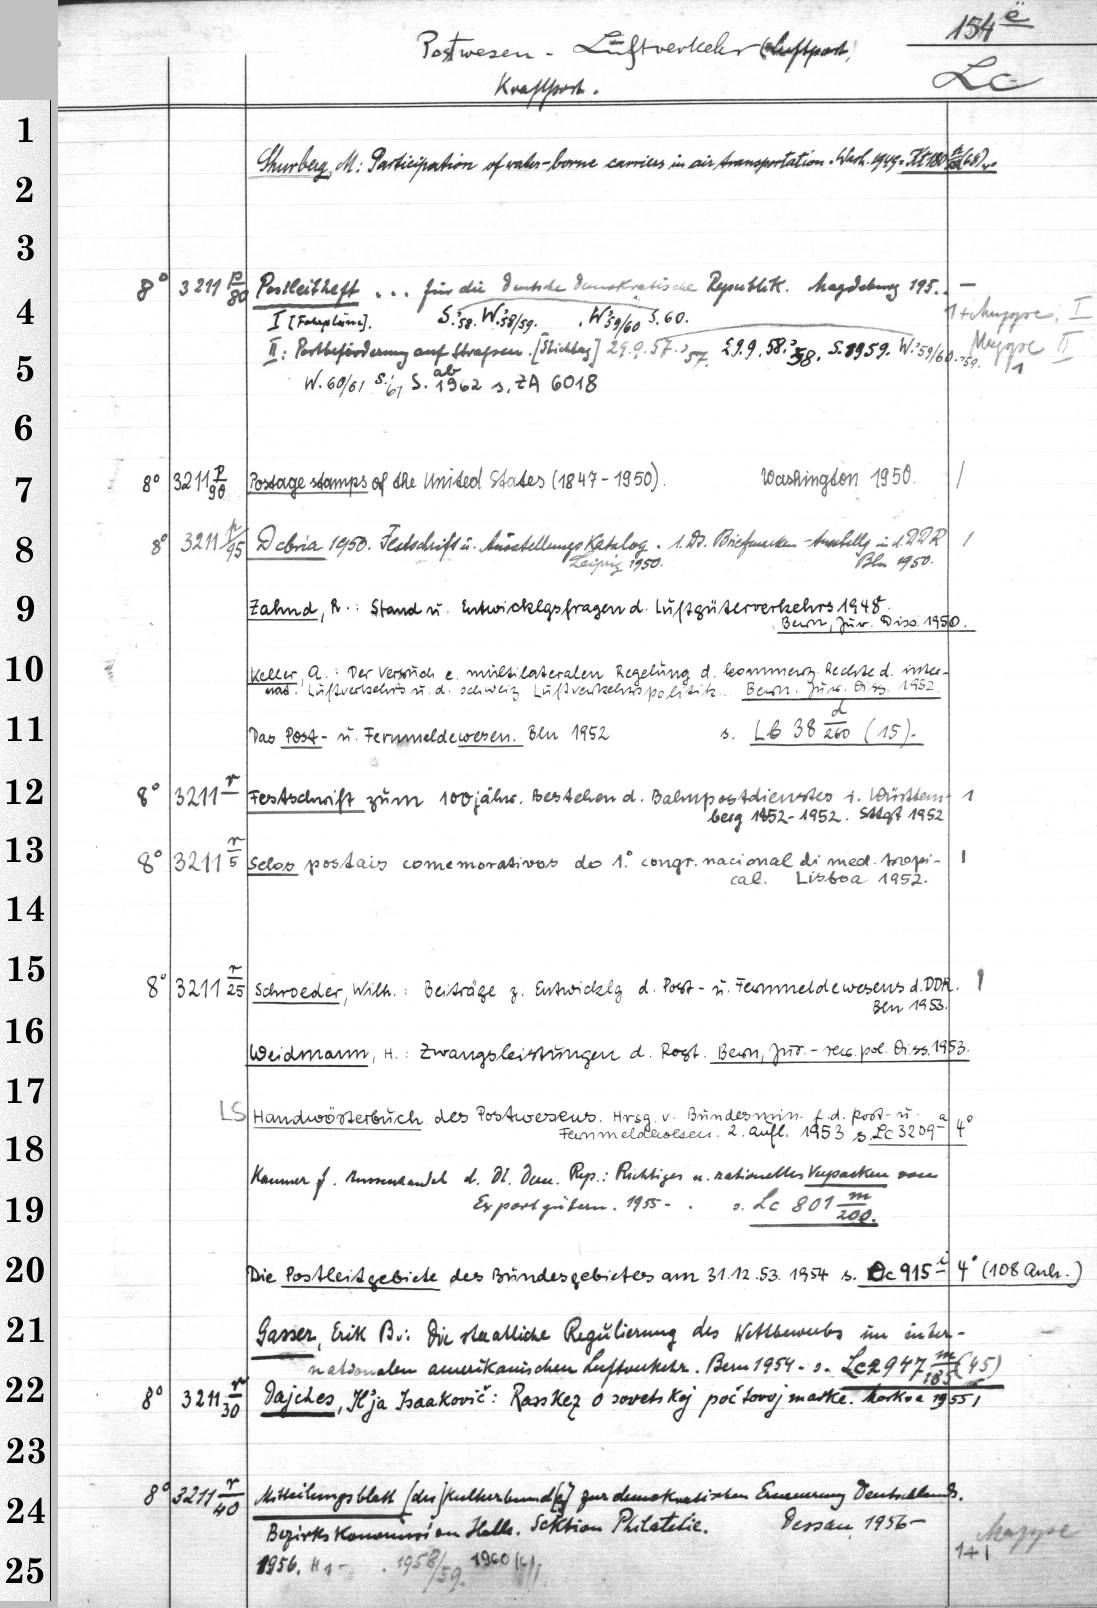 154 ë
Postwesen - Luftverkehr (Luftpost,
Kraftpost.
Lc
1
Shurberg, M: Participation of water-borne carriers in air transportation. Wash. 1949.
2
3
8° 3211 p/80 Postleitheft ... für die Deutsche Demokratische Republik. Magdeburg 195.. -
4
I [Fahrpläne]. S. 58. W. 58/59. W. 59/60 S. 60. 1+Mappe, I
II: Postbeförderung auf Strassen. [Stichtag] 29.9.57. 29.9.58. S. 1959. W. 59/60. Mappe II
5
W. 60/61 S. 61 S. ab 1962 s. ZA 6018 1
6
7
8° 3211 p/90 Postage stamps of the United States (1847-1950). Washington 1950. /
8
8° 3211 p/95 Debria 1950. Festschrift u. Ausstellungs Katalog. 1. Dt. Briefmarken-Ausstellg in d. DDR /
Leipzig 1950. Bln 1950.
9
Zahnd, R.: Stand u. Entwicklgsfragen d. Luftgüterverkehrs 1948.
Bern, Jur. Diss. 1950.
10
Keller, A.: Der Versuch e. multilateralen Regelung d. kommerz. Rechte d. inter-
nat. Luftverkehrs u. d. schweiz. Luftverkehrspolitik. Bern. Jur. Diss. 1952.
11
Das Post- u. Fernmeldewesen. Bln 1952 s. Lb 38 d/260 (15).
12
8° 3211 r Festschrift zum 100jähr. Bestehen d. Bahnpostdienstes i. Württem- 1
berg 1852-1952. Sttgt 1952
13
8° 3211 r/5 Selos postais comemorativos do 1.° congr. nacional di med. tropi- 1
cal. Lisboa 1952.
14
15
8° 3211 r/25 Schroeder, Wilh.: Beiträge z. Entwicklg d. Post- u. Fernmeldewesens d. DDR. 1
Bln 1953.
16
Weidmann, H.: Zwangsleistungen d. Post. Bern, Jur.- rer. pol. Diss. 1953.
17
LS Handwörterbuch des Postwesens. Hrsg. v. Bundesmin. f. d. Post- u.
18
Fernmeldewesen. 2. Aufl. 1953 s. Lc 3209 a 4°
Kammer f. Aussenhandel d. Dt. Dem. Rep.: Richtiges u. rationelles Verpacken von
19
Exportgütern. 1955- . s. Lc 801 m/200.
20
Die Postleitgebiete des Bundesgebietes am 31.12.53. 1954 s. Oc 915 i 4° (108 Anh.)
21
Gasser, Erik B.: Die staatliche Regulierung des Wettbewerbs im inter-
nationalen amerikanischen Luftverkehr. Bern 1954 - s. Lc 2947 m/185 (45)
22
8° 3211 r/30 Dajches, Il'ja Isaakovič: Rasskaz o sovetskoj počtovoj marke. Moskva 1955 1
23
24
8° 3211 r/40 Mitteilungsblatt [des] Kulturbund[es] zur demokratischen Erneuerung Deutschlands.
Bezirkskommission Halle. Sektion Philatelie. Dessau 1956-
25
1956. H 1- . 1958/59. 1960 1+1 Mappe